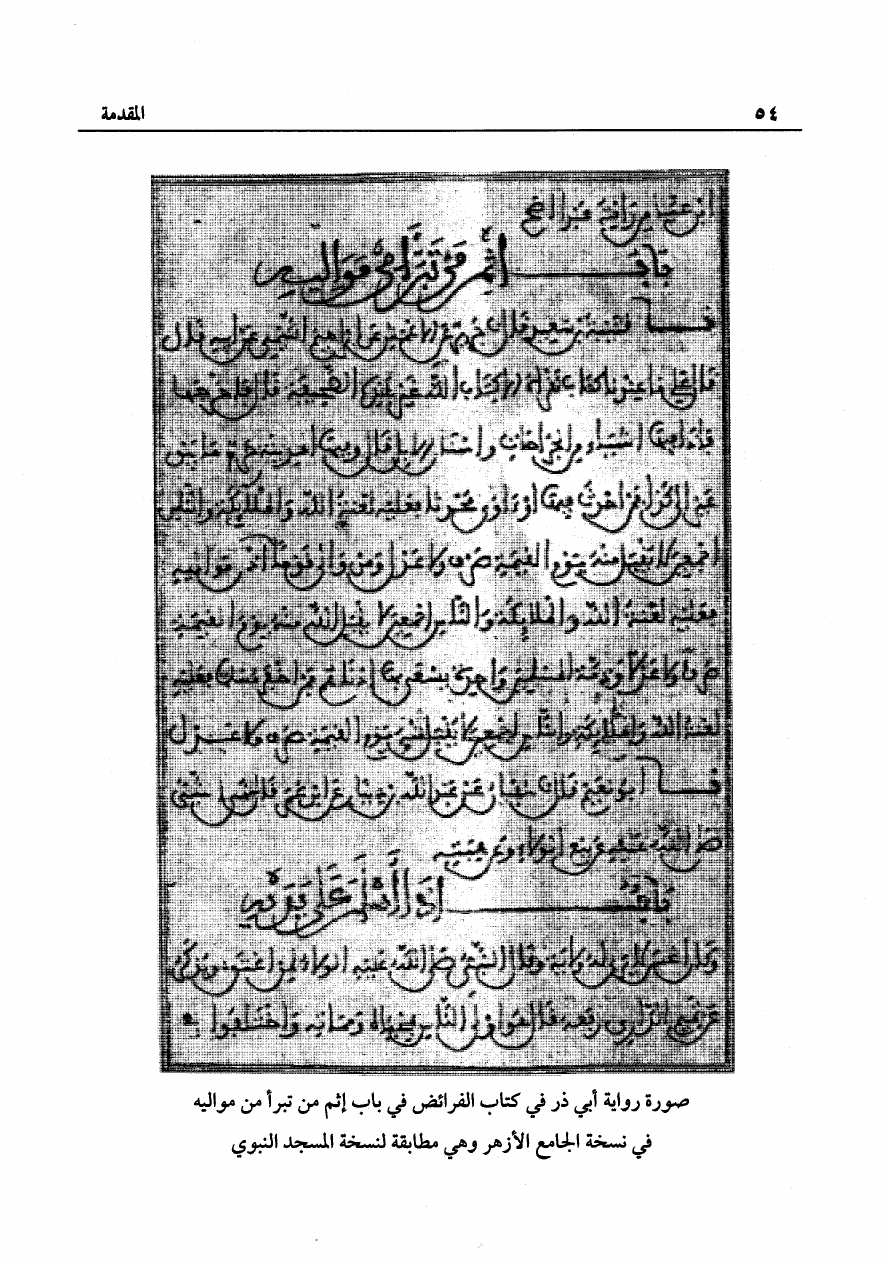 ٥٤ المقدمة
باب إثم من تبرأ من مواليه
قتيبة بن سعيد قال جرير عن الأعمش عن إبراهيم التيمي عن أبيه قال
قال علي ما عندنا كتاب نقرؤه إلا كتاب الله غير هذه الصحيفة قال فأخرجها
فإذا فيها أشياء من الجراحات وأسنان الإبل قال وفيها المدينة حرم ما بين
عير إلى كذا فمن أحدث فيها أو آوى محدثا فعليه لعنة الله والملائكة والناس
أجمعين لا يقبل منه يوم القيمة صرف ولا عدل ومن والى قوما مواليه
فعليه لعنة الله والملائكة والناس أجمعين لا يقبل الله منه يوم القيمة
صرفا ولا عدلا وذمة المسلمين واحدة يسعى بها أدناهم فمن أخفر مسلما فعليه
لعنة الله والملائكة والناس أجمعين لا يقبل يوم القيمة صرف ولا عدل
أبو نعيم قال سفيان عن عبد الله بن دينار عن ابن عمر قال نهى النبي
صلى الله عليه عن بيع الولاء وعن هبته
باب إذا أسلم على يديه
وكان الحسن لا يرى له ولاية وقال النبي صلى الله عليه الولاء لمن أعتق ويذكر
عن تميم الداري رفعه قال هو أولى الناس بمحياه ومماته واختلفوا
صورة رواية أبي ذر في كتاب الفرائض في باب إثم من تبرأ من مواليه
في نسخة الجامع الأزهر وهي مطابقة لنسخة المسجد النبوي